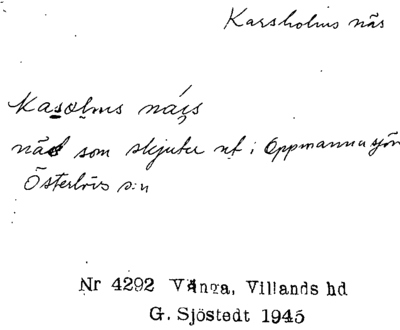 Karsholms näs
Kasolms näis
näs som skjuter ut i Oppmannasjön
Österlövs s:n
Nr 4292 Vånga, Villands hd
G. Sjöstedt 1945